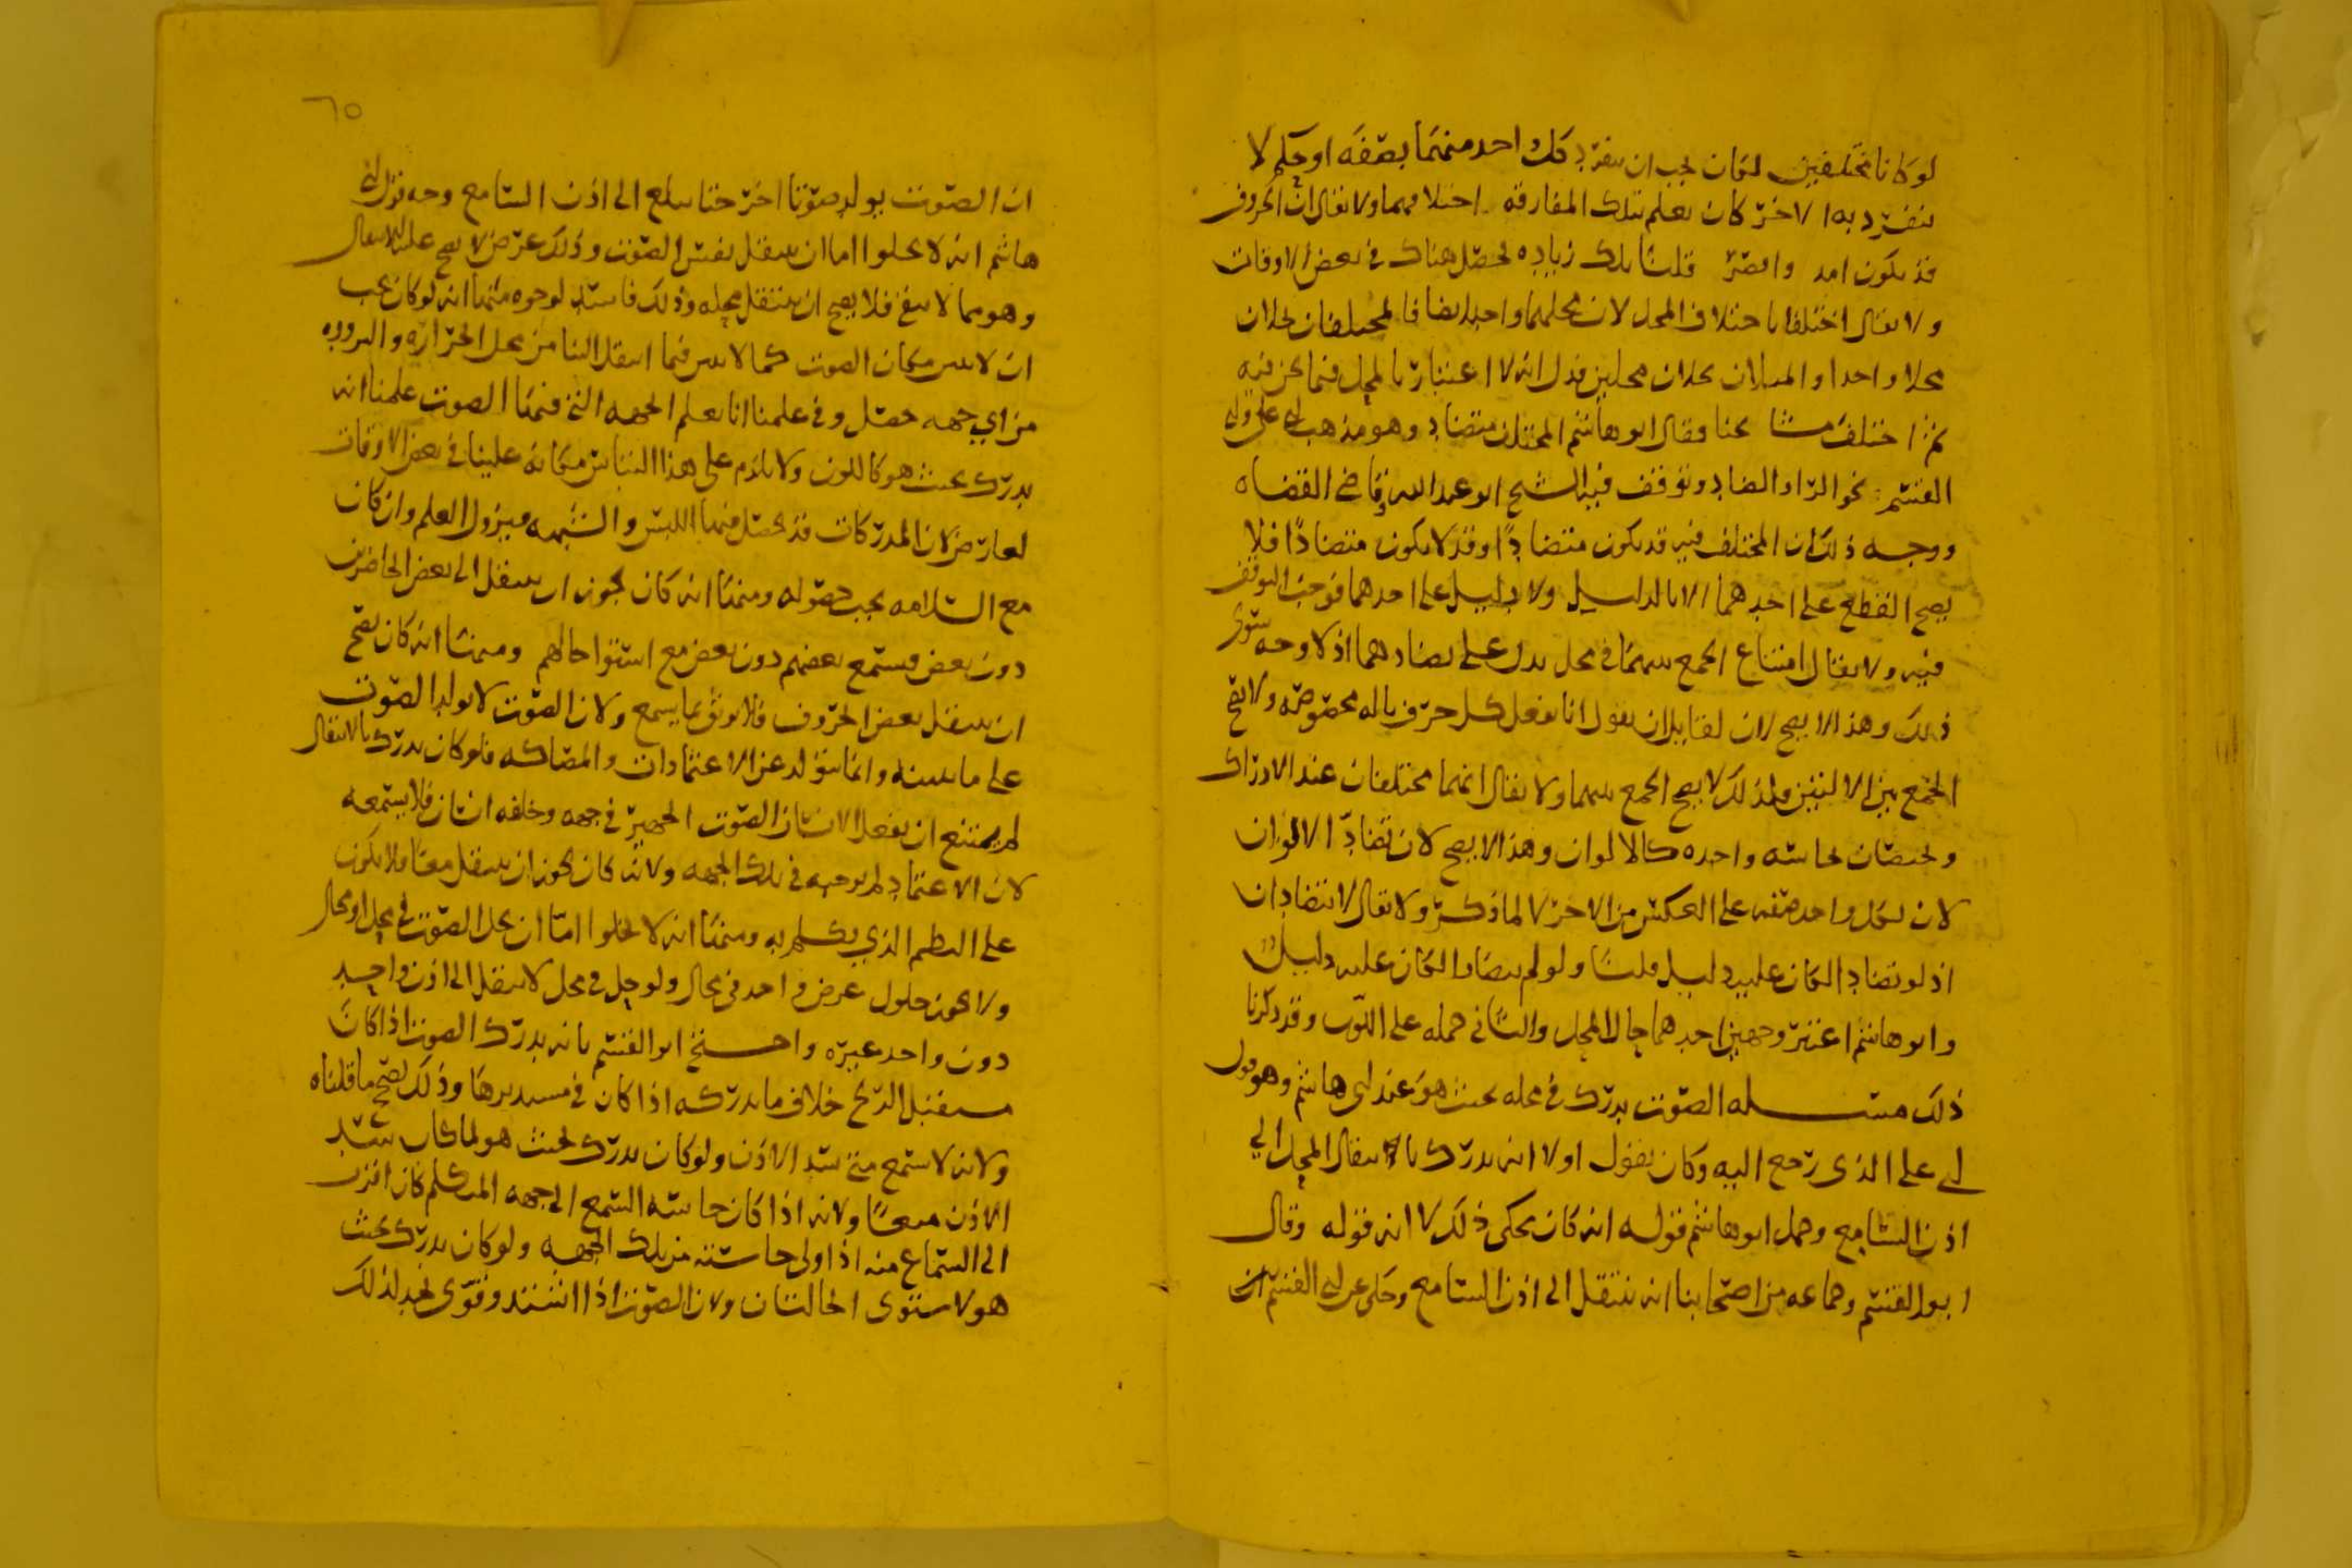 لو كانا مختلفين لكان يجب ان ينفرد كل احد منهما بصفه او حكم لا
ينفرد به الاخر كان يعلم بتلك المفارقه اختلافهما ولا يقال ان الحروف
قد يكون امد واقصر قلنا تلك زياده تحصل هناك في بعض الاوقات
ولا يقال اختلفا باختلاف المحل لان محلهما واحد ايضا فالمختلفان يحلان
محلا واحدا والمثلان يحلان محلين فدل انه لا اعتبار بالمحل فيما نحن فيه
ثم اختلف مشايخنا فقال ابو هاشم المختلف متضاد وهو مذهب ابي علي وابي
القسم نحو الراء والضاد وتوقف فيه الشيخ ابو عبد الله وقاضي القضاه
ووجه ذلك ان المختلف فيه قد يكون متضادا وقد لا يكون متضادا فلا
يصح القطع على احدهما الا بالدليل ولا دليل على احدهما فوجب التوقف
فيه ولا يقال امتناع الجمع بينهما في محل يدل على تضادهما اذ لا وجه سوى
ذلك وهذا لا يصح لان لقايل ان يقول انا نفعل كل حرف باله مخصوصه ولا يصح
الجمع بين الالتين فلذلك لا يصح الجمع بينهما ولا يقال انهما مختلفان عند الادراك
ويختصان بحاسه واحده كالالوان وهذا لا يصح لان تضاد الالوان
لان لكل واحد صفه على العكس من الاخر لا لما ذكر ولا يقال لا يتضادان
اذ لو تضادا لكان عليه دليل قلنا ولو لم يتضادا لكان عليه دليل
وابو هاشم اعتبر وجهين احدهما حال المحل والثاني حمله على اللون وقد ذكرنا
ذلك مسئله الصوت يدرك في محله بحيث هو عند ابي هاشم وهو قول
ابي علي الذي رجع اليه وكان يقول اولا انه يدرك بانتقال المحل الى
اذن السامع وحمل ابو هاشم قوله انه كان يحكي ذلك لا انه قوله وقال
ابو القسم وجماعه من اصحابنا انه ينتقل الى اذن السامع وحكي عن ابي القسم ان
٦٥
ان الصوت يولد صوتا اخر حتا يبلغ الى اذن السامع وجه قول ابي
هاشم انه لا يخلوا اما ان ينتقل نفس الصوت وذلك عرض لا يصح عليه الانتقال
وهو مما لا يبقى فلا يصح ان ينتقل محله وذلك فاسد لوجوه منها انه لو كان يجب
ان لا يتبين مكان الصوت كما لا يتبين فيما انتقل الينا من محل الحراره والبروده
من اي جهه حصل وفي علمنا انا نعلم الجهه التي فيها الصوت علمنا انه
يدرك بحيث هو كاللون ولا يلزم على هذا التباس مكانه علينا في بعض الاوقات
لعارض لان المدركات قد يحصل فيها اللبس والشبهه فيزول العلم وان كان
مع السلامه يجب حصوله ومنها انه كان يجوز ان ينتقل الى بعض الحاضرين
دون بعض فيسمع بعضهم دون بعض مع استوا حالهم ومنها انه كان يصح
ان ينتقل بعض الحروف فلا يوثق بما يسمع ولان الصوت لا يولد الصوت
على ما نبينه وانما يتولد عن الاعتمادات والمصاكه فلو كان يدرك بالانتقال
لم يمتنع ان يفعل الانسان الصوت الجهير في جهه وخلفه انسان فلا يسمعه
لان الاعتماد لم يوجبه في تلك الجهه ولانه كان يجوز ان ينتقل معا فلا يكون
على النظم الذي يكلم به ومنها انه لا يخلوا اما ان يحل الصوت في محل او محال
ولا يجوز حلول عرض واحد في محال ولو حل في محل لا ينتقل الى اذن واحد
دون واحد غيره واحتج ابو القسم بانه يدرك الصوت اذا كان
مستقبل الريح خلاف ما يدركه اذا كان في مستدبرها وذلك يصح ما قلناه
ولانه لا يسمع متى سد الاذن ولو كان يدرك بحيث هو لما كان سد
الاذن منعا ولانه اذا كان حاسه السمع الى جهه المتكلم كان اقرب
الى السماع منه اذا ولى حاسته من تلك الجهه ولو كان يدرك بحيث
هو لاستوى الحالتان ولان الصوت اذا اشتد وقوى نجد لذلك